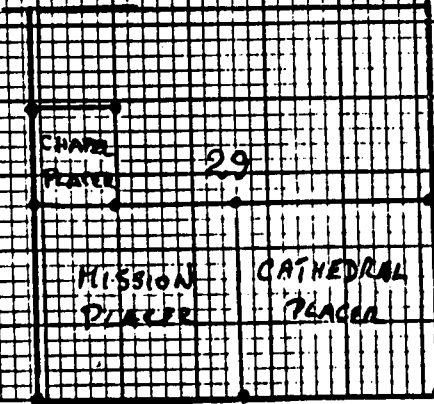 CHAPEL
PLACER
29
MISSION
PLACER
CATHEDRAL
PLACER